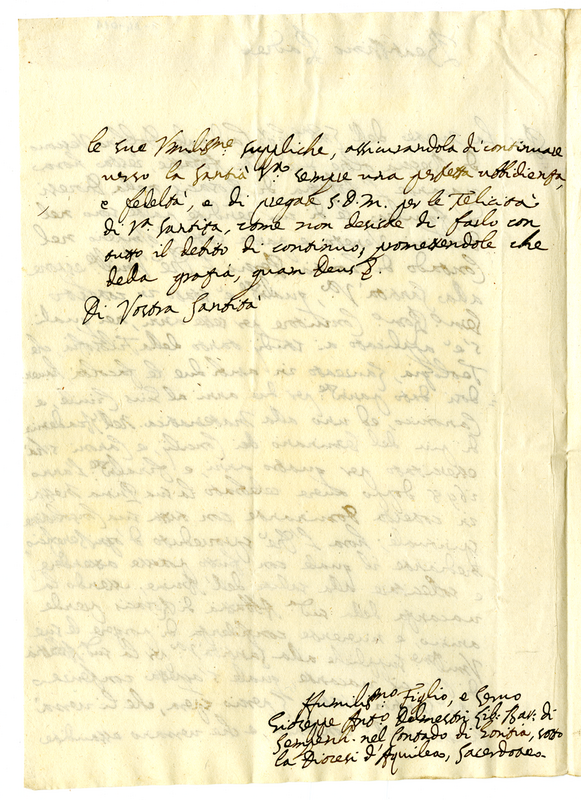 le sue Umiliss.me suppliche, assicurandola di continuare
verso la Santità V.ra sempre una perfetta ubbidienza,
e fedeltà, e di pregare S.D.M. per le Felicità
di V.ra Santità, come non desiche di farlo con
tutto il debito di continuo, promettendole che
della grazia, quam Deus
Di Vostra Santità
Humiliss.mo Figlio, e Servo
Giuseppe Ant.o Delmestri Lib. Bar. di
nel Contado di Goritia, sotto
la Diocesi d'Aquileia, Sacerdote